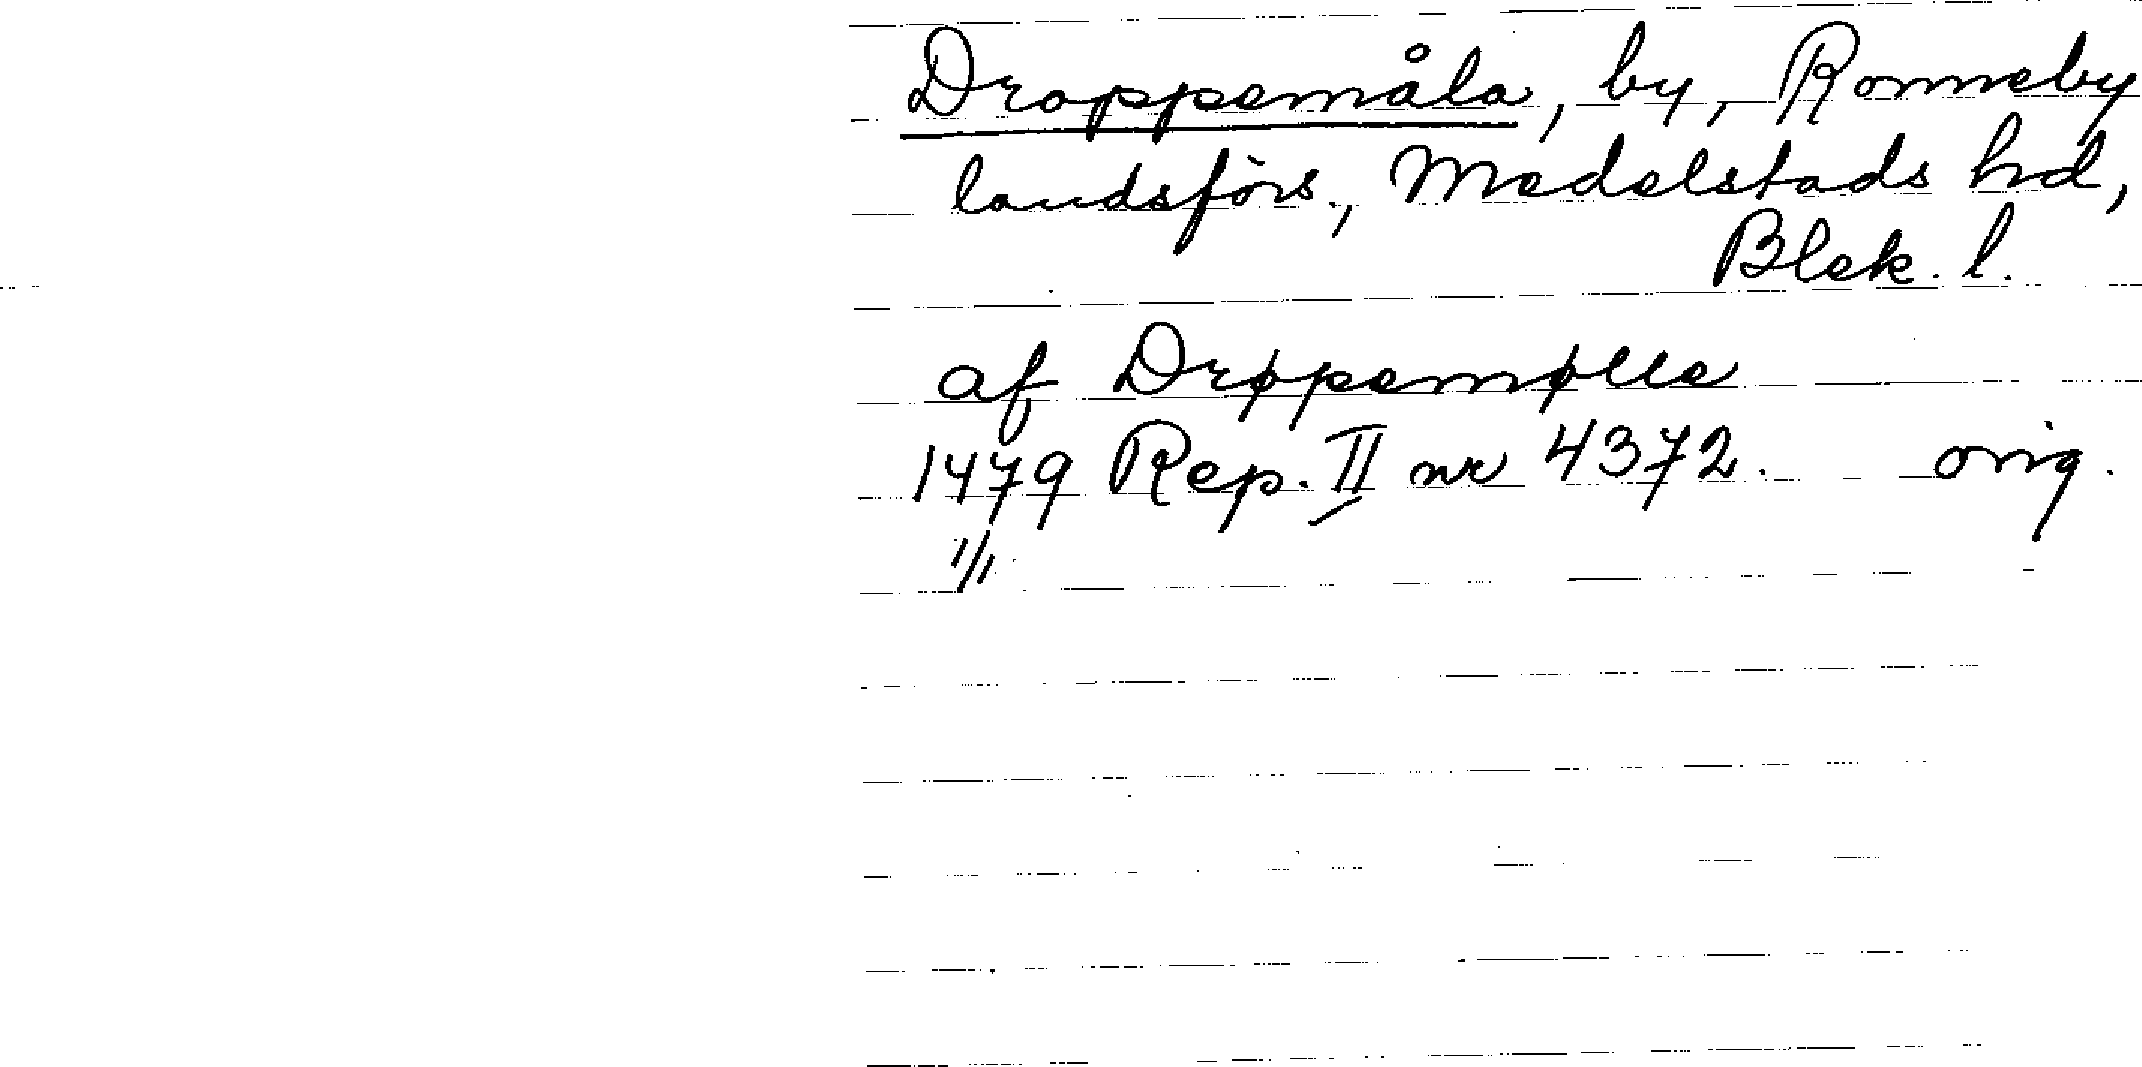 Droppemåla, by, Ronneby
landsförs., Medelstads hd,
Blek. l.
af Drøppemølle
1479 Rep. II nr 4372. orig.
1/1